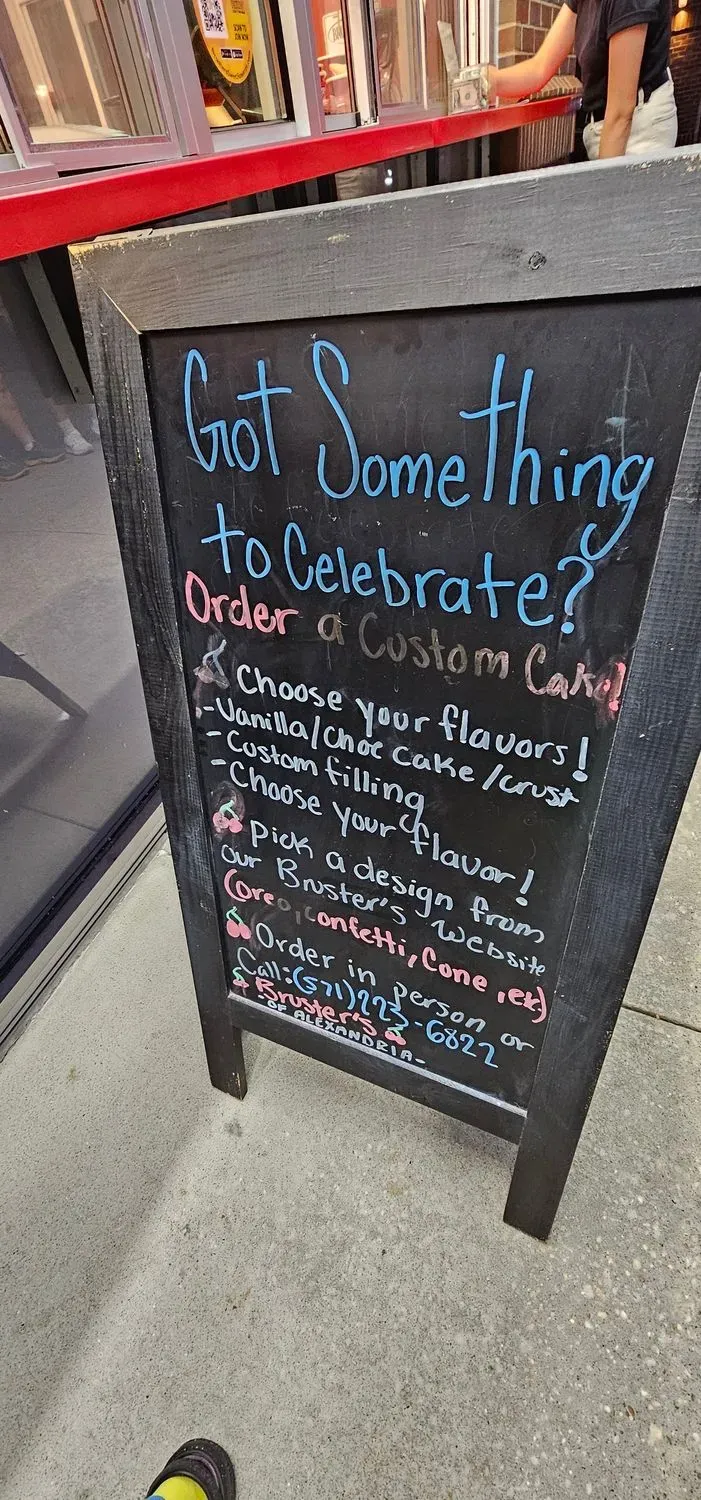 Got Something
to Celebrate?
Order a Custom Cake!
Choose your flavors!
-Vanilla/choc cake/crust
-Custom filling
-Choose your flavor!
Pick a design from
our Bruster's website
(oreo, confetti, Cone, etc)
Order in person or
Call: (571) 223-6822
Bruster's
-OF ALEXANDRIA-